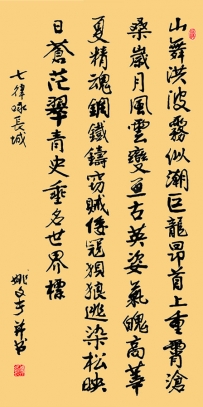 山舞洪波霧似潮巨龍昂首上重霄滄
桑歲月風雲變亙古英姿氣魄高華
夏精魂鋼鐵鑄竊賊倭寇狽狼逃染松映
日蒼茫翠青史垂名世界標
七律咏長城